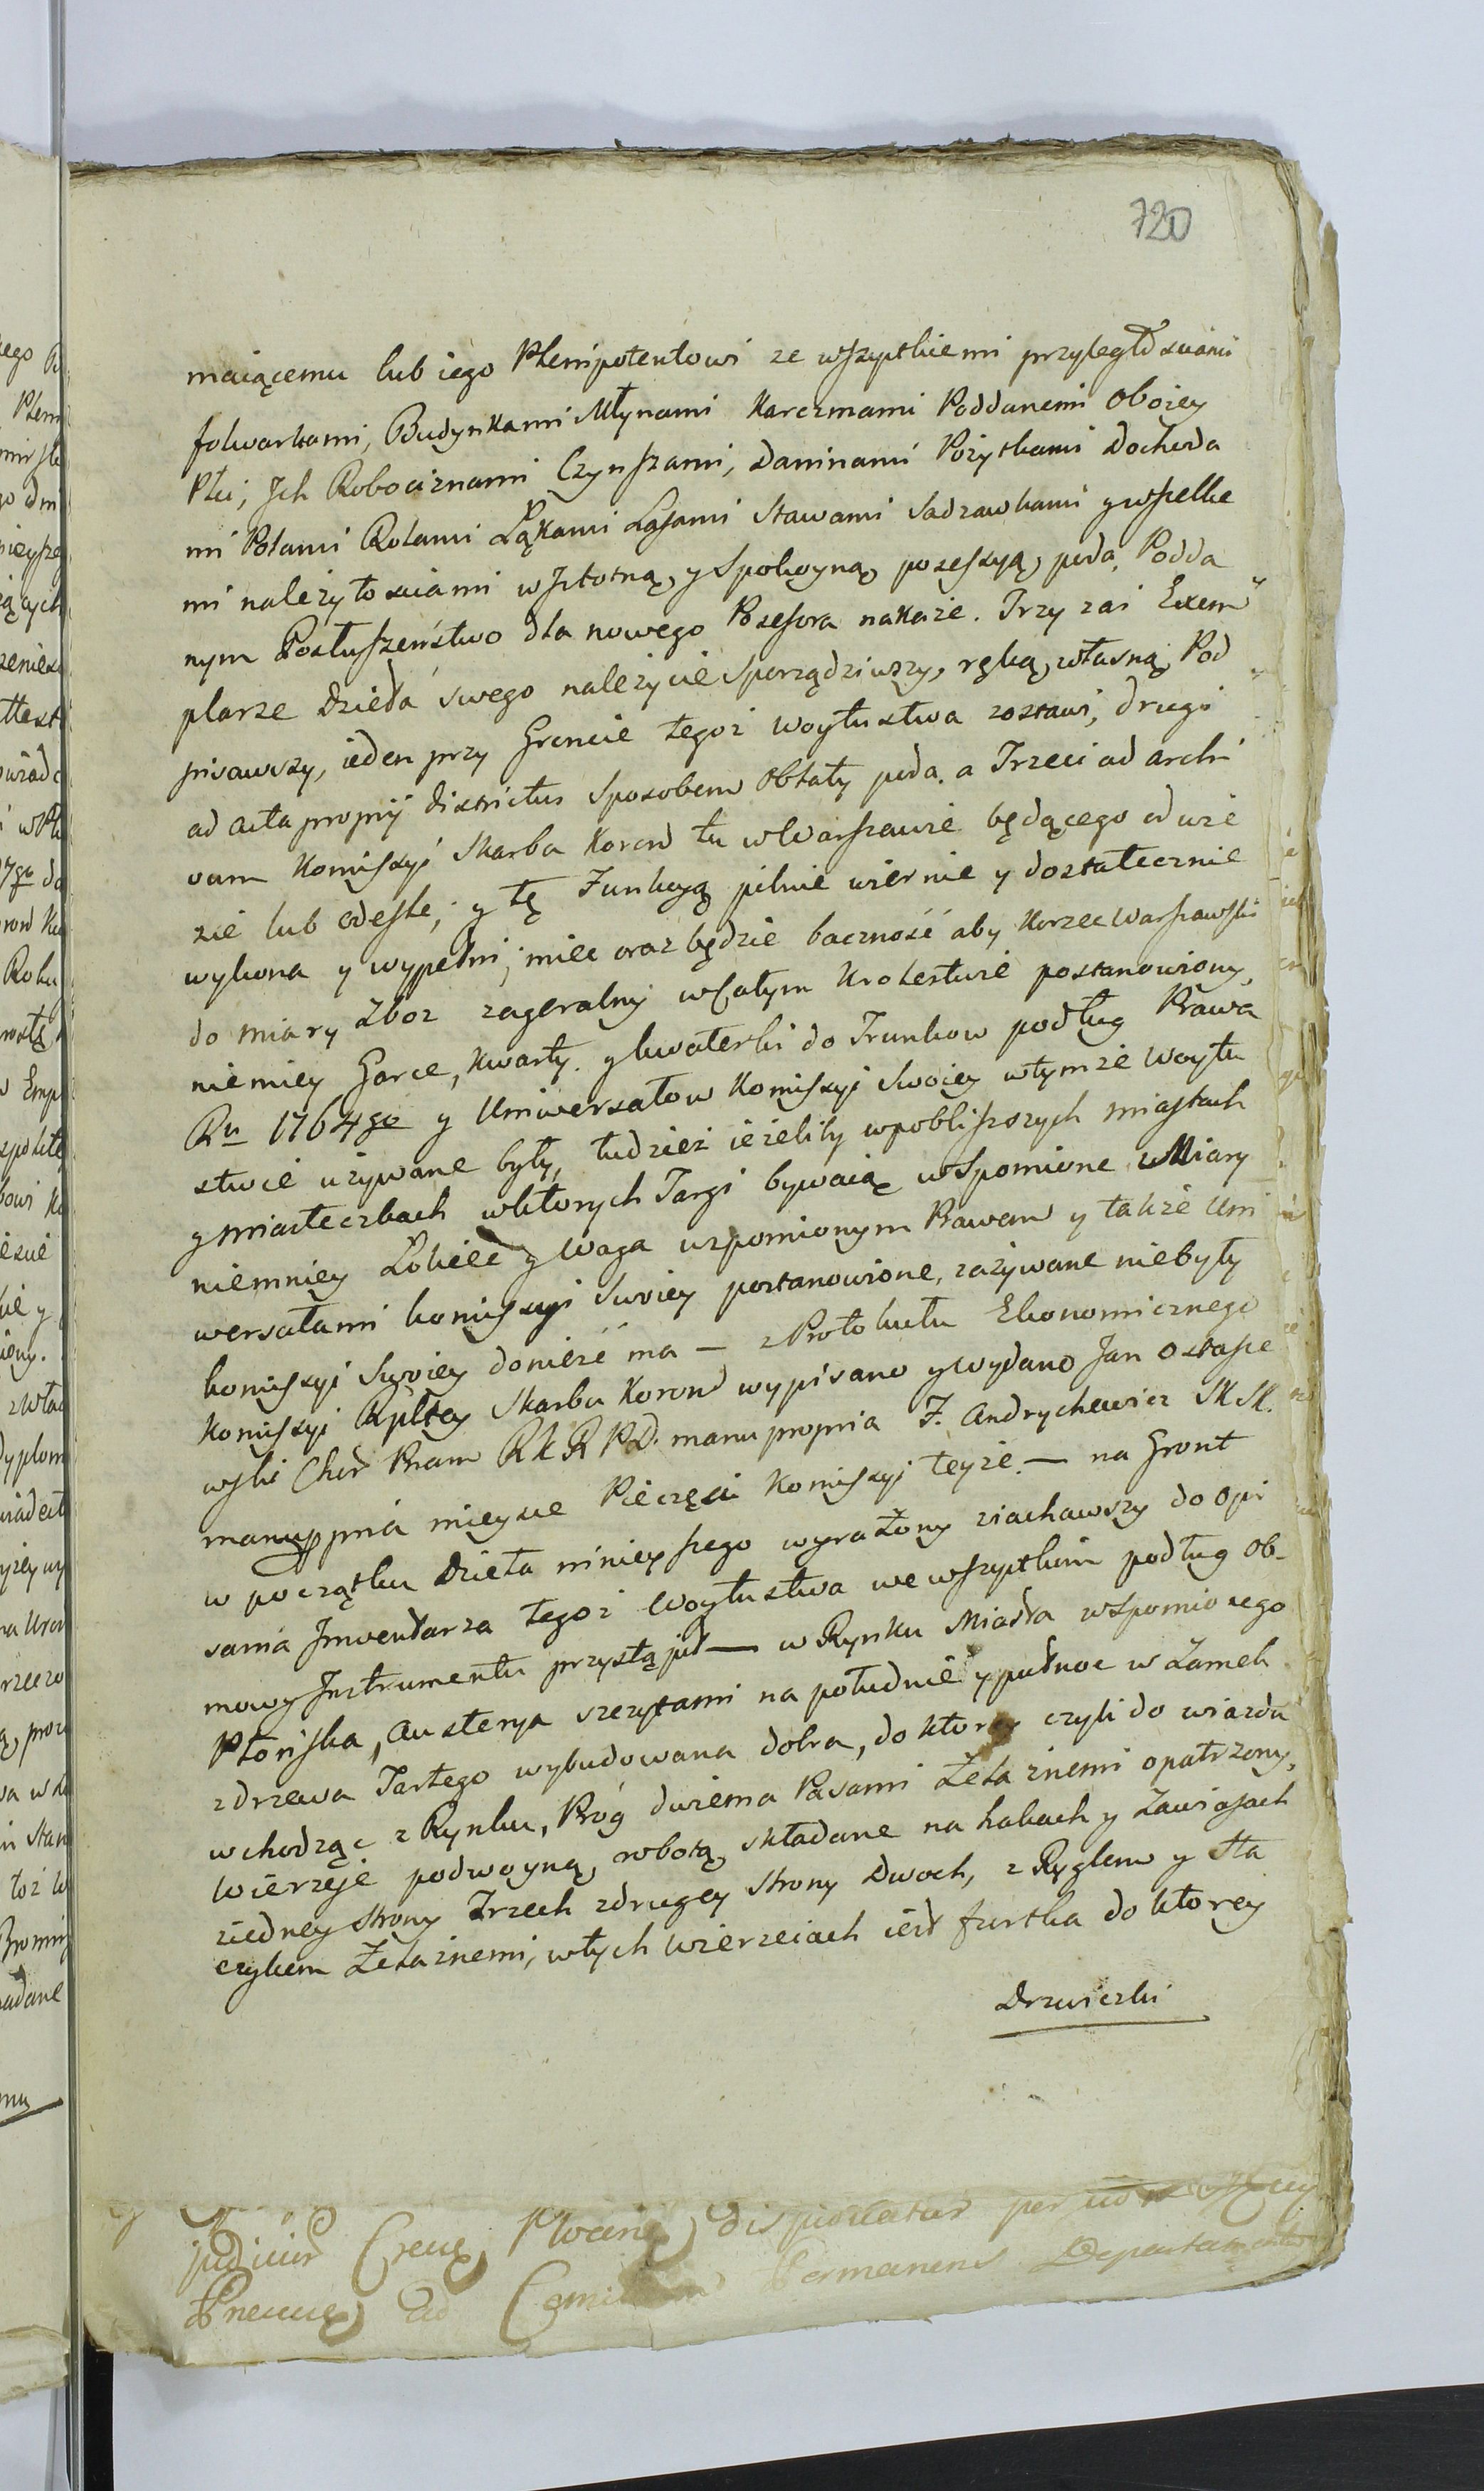 720
maiącemu lub iego Plenipotentowi ze wszystkiemi przyległościami
folwarkami, Budynkami Młynami Karczmami Poddanemi Oboiey
Płci, Jch Robociznami Czynszami, Daninami Pożytkami Dochoda
mi Polami Rolami Łąkami Lasami Stawami Sadzawkami y wszelke
mi należytosciami w Jstotną, y Spokoyną, posessyą, poda, Podda
nym Posłuszeństwo dla nowego Posesora nakaże. Trzy zaś Exem
plarze Dzieła swego należycie Sporządziwszy, ręką, własną, Pod
pisawszy, ieden przy Groncie tegoż Woytustwa zostawi, drugi
ad acta proprij districtus Sposobem Oblaty poda. a Trzeci ad archi
vum Komissyi Skarbu Koron tu w Warszawie będącego odwie
zie lub odeszle, y tę Funkcyą pilnie wiernie y dostatecznie
wykona y wypełni, miec oraz będzie baczność aby Korzec Warszawski
do miary Zboz zageralny w Całym Krolestwie postanowiony,
niemiey Garce, Kwarty. y kwaterki do Trunkow podług Prawa
Ru 1764go y Uniwersałow Komissyi Swoiey w tymże Woytu
stwie używane były, tudzież ieżeliby w pobliższych miastach
y miasteczkach w ktorych Targi bywaią wspomione Miary
niemniey Łokieć y Waga wzpomionym Prawem y także Uni
wersałami komissyi Swoiey postanowione, zażywane niebyły
komissyi Swoiey donieść ma — z Protokułu Ekonomicznego
Komissyi Rpltey Skarbu Koron wypisano y Wydano Jan Ostasze
wski Chor Pram R k R P D. manu propria F. Andrychewicz SK SK.
manu ppria mieysce Pieczęci Komissyi teyże — na Gront
w początku Dzieła ninieyszego wyrażony ziachawszy do Opi
sania Jnwentarza tegoż Woytustwa we wszystkim podług Ob-
mowy Jnstrumentu przystąpił — w Rynku Miasta wspomionego
Płońska, Austerya szczytami na południe y pułnoc w Zamek
z drzewa Tartego wybudowana dobra, do ktorey czyli do wiazdu
wchodząc z Rynku, Próg dwiema Pasami Żelaznemi opatrzony,
Wierzeje podwoyną, robotą, składane na hakach y Zawiasach
ziedney Strony Trzech zdrugey Strony Dwoch, z Ryglem y Sta
czykem Żelaznemi, w tych Wierzeiach iest furtka do ktorey
Drzwiczki
judicium Płocin
Permanens